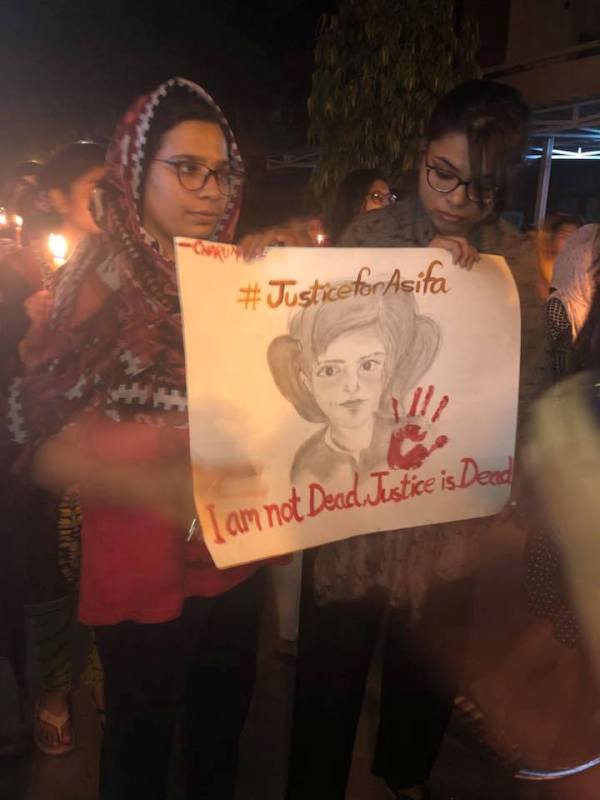 #JusticeforAsifa
I am not Dead. Justice is Dead